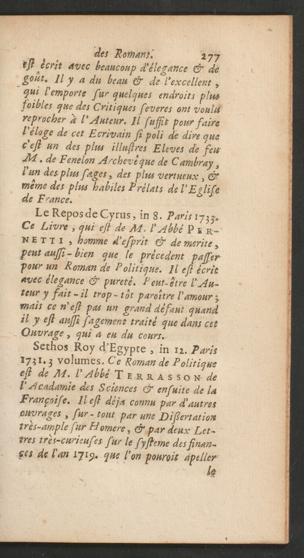 des Romans. 277
est écrit avec beaucoup d'élegance & de
goût. Il y a du beau & de l'excellent,
qui l'emporte sur quelques endroits plus
foibles que des Critiques severes ont voulu
reprocher à l'Auteur. Il suffit pour faire
l'éloge de cet Ecrivain si poli de dire que
c'est un des plus illustres Eleves de feu
M. de Fenelon Archevêque de Cambray,
l'un des plus sages, des plus vertueux, &
même des plus habiles Prélats de l'Eglise
de France.
Le Repos de Cyrus, in 8. Paris 1733.
Ce Livre, qui est de M. l'Abbé PER-
NETTI, homme d'esprit & de merite,
peut aussi-bien que le précedent passer
pour un Roman de Politique. Il est écrit
avec élegance & pureté. Peut-être l'Au-
teur y fait-il trop-tôt paroître l'amour;
mais ce n'est pas un grand défaut quand
il y est aussi sagement traité que dans cet
Ouvrage, qui a eu du cours.
Sethos Roy d'Egypte, in 12. Paris
1731. 3 volumes. Ce Roman de Politique
est de M. l'Abbé TERRASSON de
l'Acadamie des Sciences & ensuite de la
Françoise. Il est déja connu par d'autres
ouvrages, sur-tout par une Dissertation
très-ample sur Homere, & par deux Let-
tres très-curieuses sur le systeme des finan-
ces de l'an 1719. que l'on pouroit apeller
le